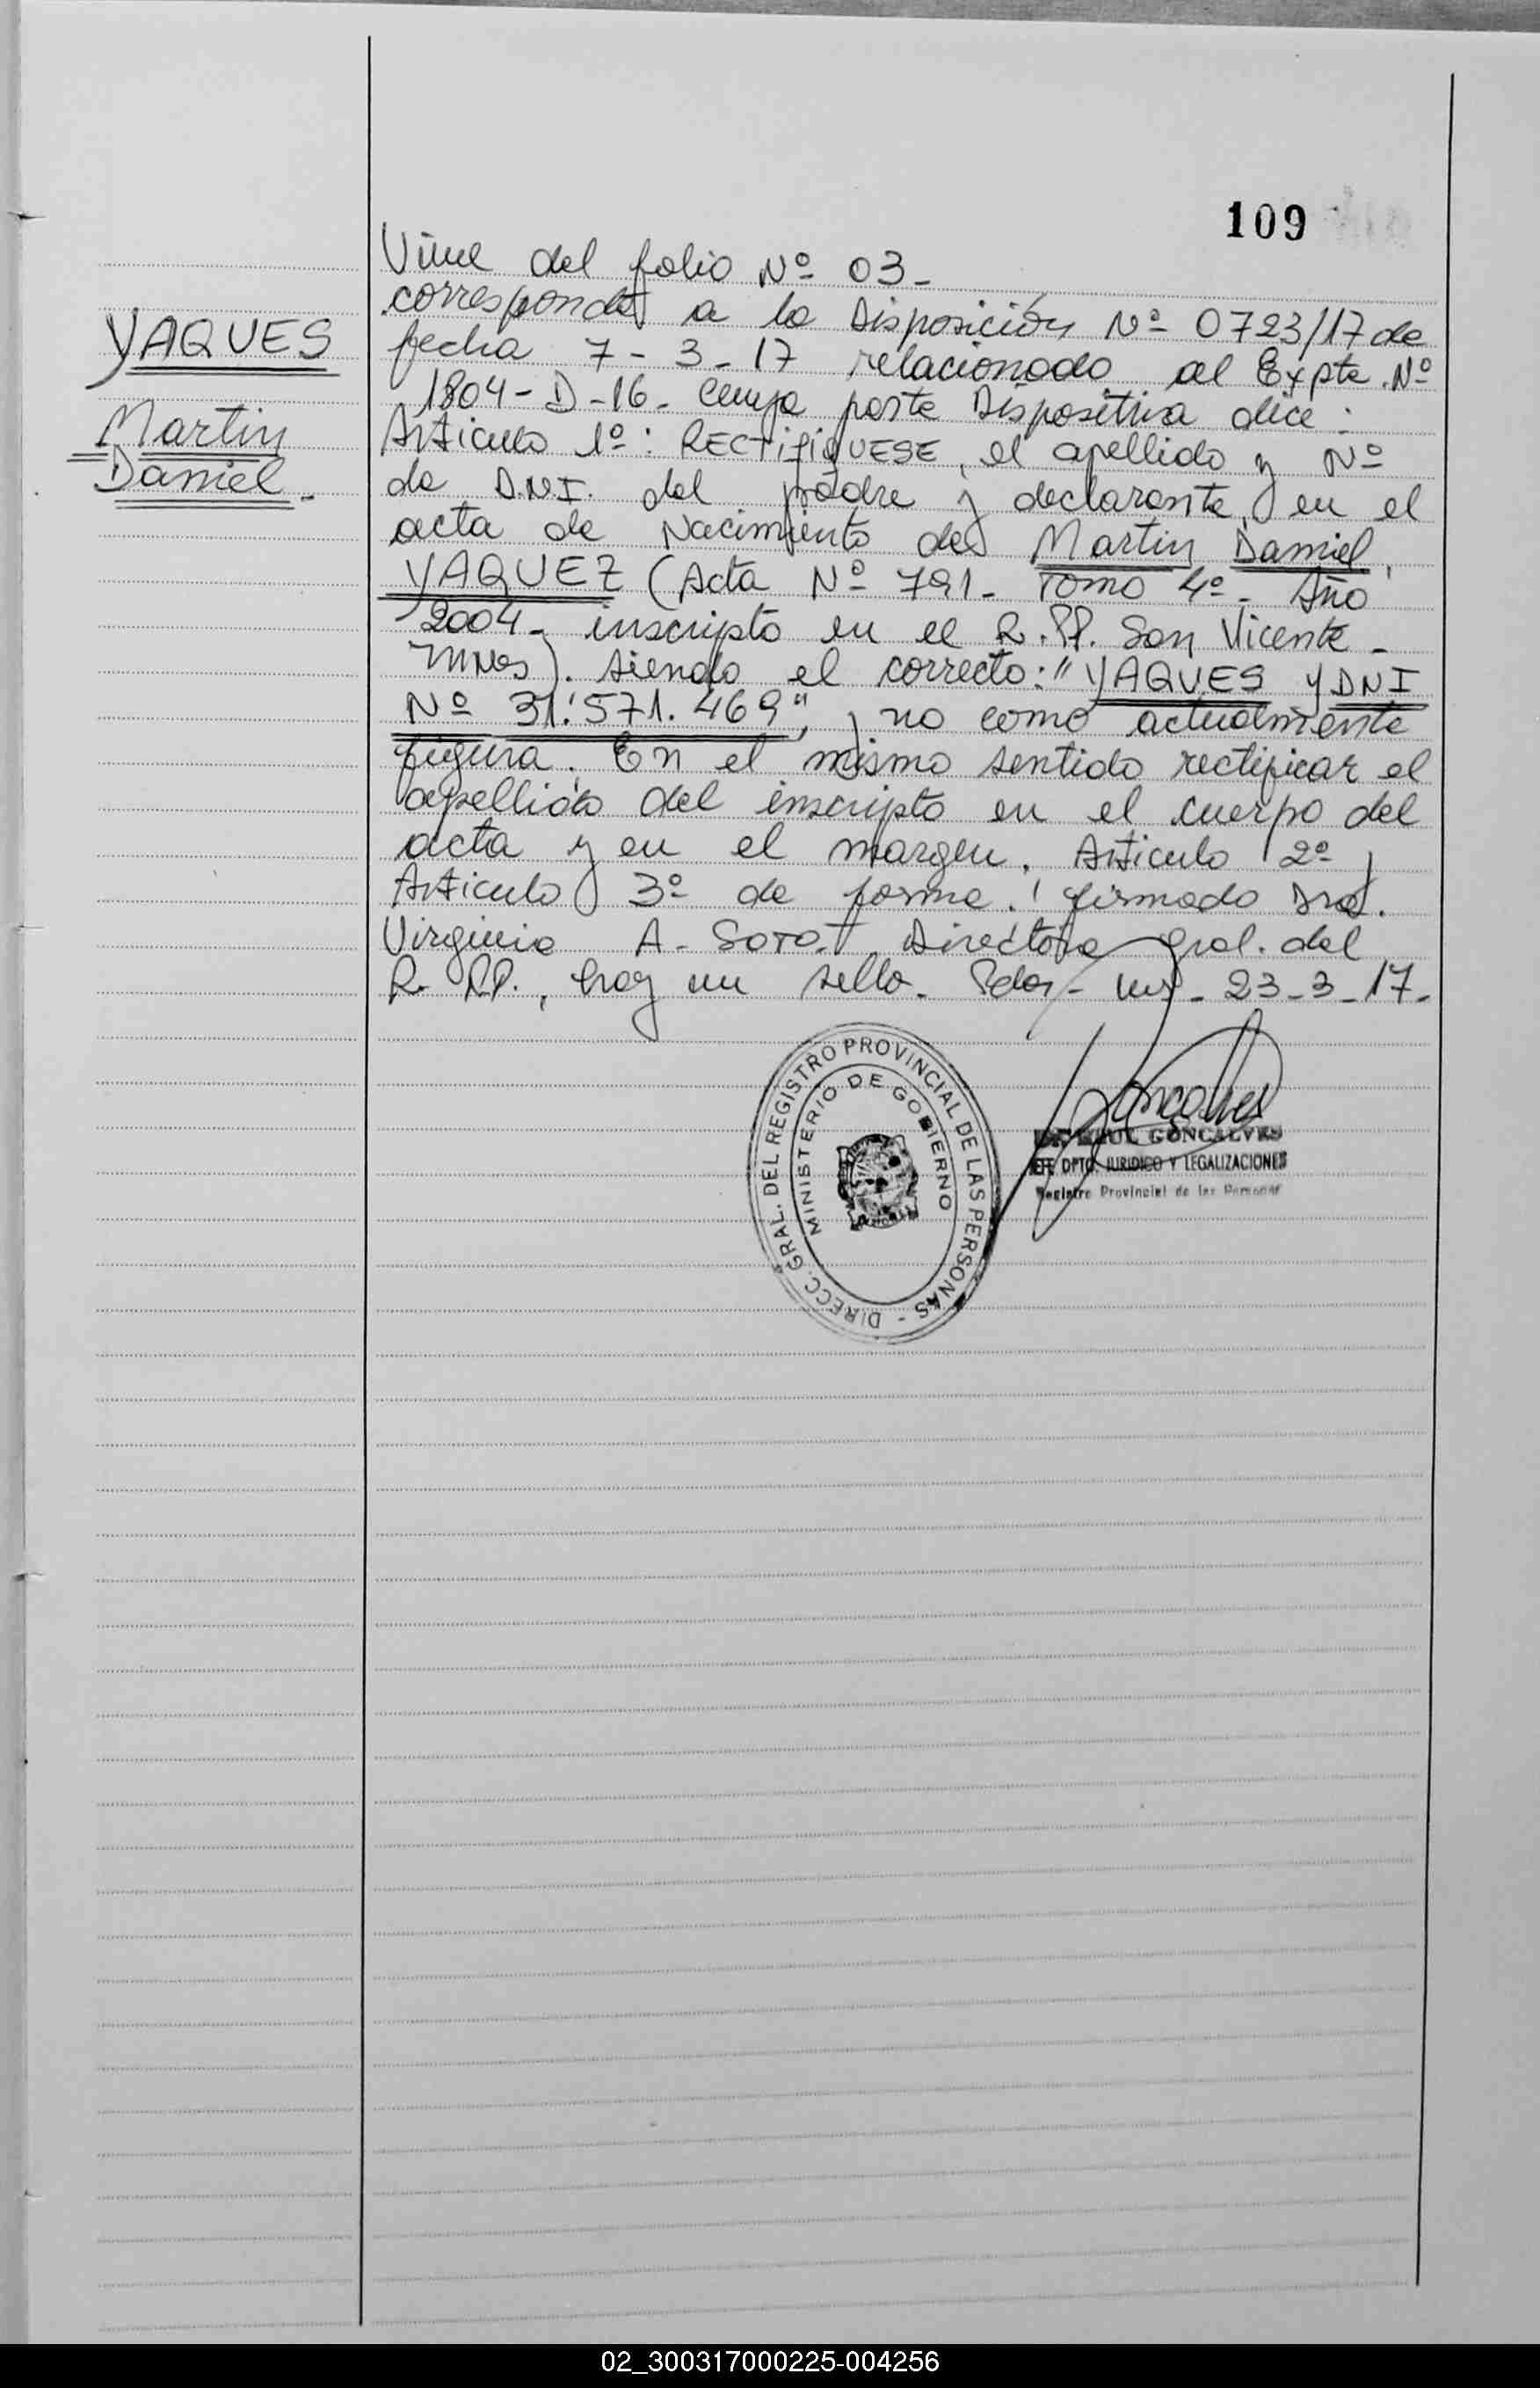 109
YAQUES
Martin
Daniel.-
Viene del folio Nº 03-
corresponde a la Disposición Nº 0723/17 de
fecha 7-3-17 relacionado al Expte. Nº
1804-D-16- cuya parte Dispositiva dice:
Articulo 1º: RECTIFIQUESE, el apellido y Nº
de D.N.I. del padre y declarante, en el
acta de Nacimiento de Martin Daniel
YAQUEZ (Acta Nº 791- Tomo 4º- Año
2004- inscripto en el R.PP. San Vicente -
Mnes). siendo el correcto: "YAQUES y DNI
Nº 31.571.469", y no como actualmente
figura. En el mismo sentido rectificar el
apellido del inscripto en el cuerpo del
acta y en el margen. Articulo 2º y
Articulo 3º de forma. firmado Dra.
Virginia A. SOTO. Directora Gral. del
R. PP., hay un sello. Pdas- Ms- 23-3-17-
DIRECC. GRAL. DEL REGISTRO PROVINCIAL DE LAS PERSONAS -
MINISTERIO DE GOBIERNO
GONCALVES
DPTO. JURIDICO Y LEGALIZACIONES
Registro Provincial de las Personas
02_300317000225-004256